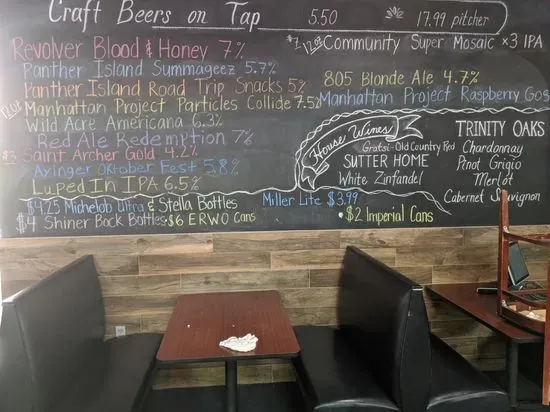 Craft Beers on Tap 5.50 17.99 pitcher
Revolver Blood & Honey 7%
Panther Island Summageez 5.7%
Panther Island Road Trip Snacks 5%
12oz Manhattan Project Particles Collide 7.5%
Wild Acre Americana 6.3%
Red Ale Redemption 7%
$3 Saint Archer Gold 4.2%
Ayinger Oktober Fest 5.8%
Luped In IPA 6.5%
$4.25 Michelob Ultra & Stella Bottles
$4 Shiner Bock Bottles
$6 ERWO Cans
Miller Lite $3.99
$2 Imperial Cans
12oz Community Super Mosaic x3 IPA
805 Blonde Ale 4.7%
Manhattan Project Raspberry Gos
House Wines
Gratsi-Old Country Red
SUTTER HOME
White Zinfandel
TRINITY OAKS
Chardonnay
Pinot Grigio
Merlot
Cabernet Sauvignon